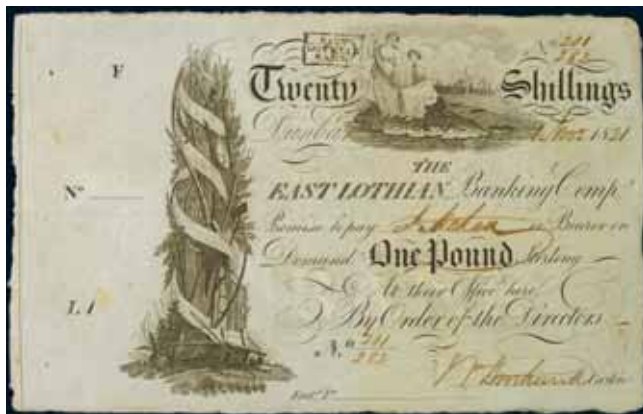 F
Nº 201
382
Twenty Shillings
Dunbar Novr 1821
THE
Nº
EAST LOTHIAN Banking Compy
Promise to pay or Bearer on
Demand One Pound Sterling
At their Office here
L 1
By Order of the Directors
Nº 201
382
Entd